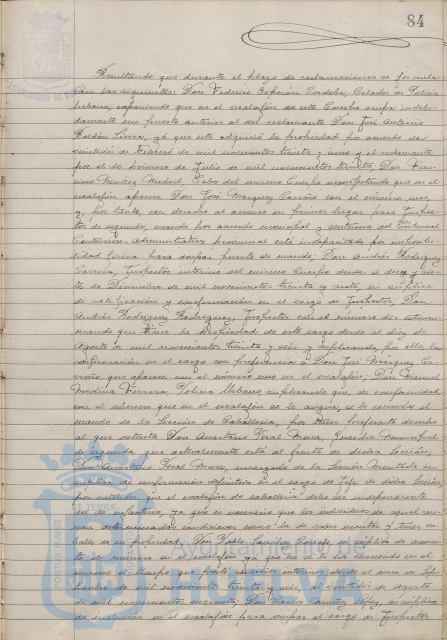 84
Resultando que durante el plazo de reclamaciones se formula-
ron las siguientes: Don Federico Cordoba, Celador de Policia
Urbana, exponiendo que en el escalafón de este Cuerpo ocupa indebi-
damente un puesto anterior al del reclamante Don José Antonio
Sierra, ya que este adquirió la propiedad por acuerdo de
de Febrero de mil novecientos treinta y cinco y el reclamante
por el de primero de Julio de mil novecientos treinta; Don Fran-
cisco Muñoz Madrid, Cabo del mismo Cuerpo manifestando que en el
escalafón aparece Don José Marquez Carreño con el número uno,
y, por tanto, con derecho al ascenso en primer lugar para Inspec-
tor de segunda, cuando por acuerdo municipal y sentencia del Tribunal
Contencioso-administrativo provincial está incapacitado por imposibi-
lidad física para ocupar puesto de mando; Don Andrés Rodriguez
Inspector interino del mismo Cuerpo desde el diez y sie-
te de Diciembre de mil novecientos treinta y en súplica
de ratificación y confirmación en el cargo de Inspector; Don
Andrés Rodriguez Rodriguez, Inspector con el número dos
mando que tiene la propiedad de este cargo desde el diez de
Agosto de mil novecientos treinta y seis y suplicando por ello la
confirmación en el cargo con preferencia a Don José Márquez Ca-
rreño que aparece con el número uno en el escalafón; Don Manuel
Medina Herrera, Policia Urbano, suplicando que, de conformidad
con el número que en el escalafón se le asigna, se le conceda el
mando de la Sección de Caballeria, por tener preferente derecho
al que ostenta Don Anastasio Peral Mora, Guardia Municipal
de segunda que actualmente está al frente de dicha Sección;
Don Anastasio Peral Mora, encargado de la Sección Montada en
súplica de confirmación definitiva en el cargo de Jefe de dicha Sección,
por entender que el escalafón de caballeria debe ser independiente
de infanteria, ya que es necesario que los individuos de aquel reu-
nan determinadas condiciones como la de saber montar y tener ca-
ballo de su propiedad; Don Pablo Sanchez en súplica de aumen-
to de número en el escalafón ya que no se ha computado en el
mismo el tiempo que prestó servicios interinos desde el once de Sep-
tiembre de mil novecientos treinta y seis, al veintidós de agosto
de mil novecientos cuarenta; Don Carlos Muñoz López, en súplica
de inclusión en el escalafón para ocupar el cargo de Inspector
Ayuntamiento de
HUELVA